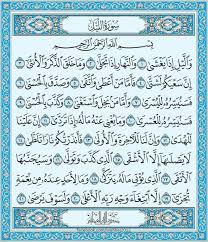 سُورَةُ اللَّيْلِ
بِسْمِ ٱللَّهِ ٱلرَّحْمَٰنِ ٱلرَّحِيمِ
وَٱلَّيْلِ إِذَا يَغْشَىٰ ١ وَٱلنَّهَارِ إِذَا تَجَلَّىٰ ٢ وَمَا خَلَقَ ٱلذَّكَرَ وَٱلْأُنثَىٰ ٣
إِنَّ سَعْيَكُمْ لَشَتَّىٰ ٤ فَأَمَّا مَنْ أَعْطَىٰ وَٱتَّقَىٰ ٥ وَصَدَّقَ بِٱلْحُسْنَىٰ ٦
فَسَنُيَسِّرُهُۥ لِلْيُسْرَىٰ ٧ وَأَمَّا مَنۢ بَخِلَ وَٱسْتَغْنَىٰ ٨ وَكَذَّبَ بِٱلْحُسْنَىٰ ٩
فَسَنُيَسِّرُهُۥ لِلْعُسْرَىٰ ١٠ وَمَا يُغْنِى عَنْهُ مَالُهُۥٓ إِذَا تَرَدَّىٰٓ ١١ إِنَّ عَلَيْنَا
لَلْهُدَىٰ ١٢ وَإِنَّ لَنَا لَلْـَٔاخِرَةَ وَٱلْأُولَىٰ ١٣ فَأَنذَرْتُكُمْ نَارًا تَلَظَّىٰ ١٤
لَا يَصْلَىٰهَآ إِلَّا ٱلْأَشْقَى ١٥ ٱلَّذِى كَذَّبَ وَتَوَلَّىٰ ١٦ وَسَيُجَنَّبُهَا
ٱلْأَتْقَى ١٧ ٱلَّذِى يُؤْتِى مَالَهُۥ يَتَزَكَّىٰ ١٨ وَمَا لِأَحَدٍ عِندَهُۥ مِن نِّعْمَةٍ
تُجْزَىٰٓ ١٩ إِلَّا ٱبْتِغَآءَ وَجْهِ رَبِّهِ ٱلْأَعْلَىٰ ٢٠ وَلَسَوْفَ يَرْضَىٰ ٢١